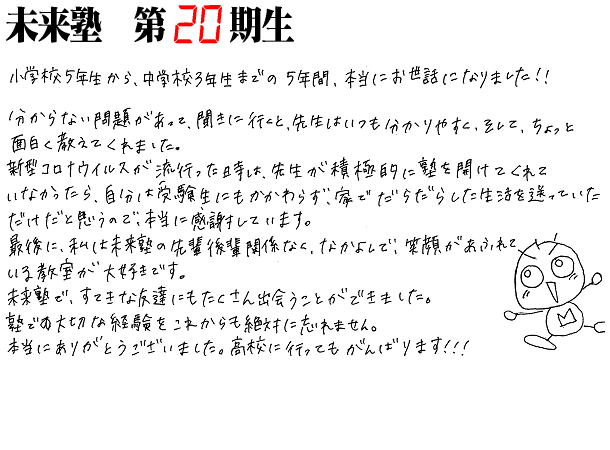 未来塾 第20期生
小学校5年生から、中学校3年生までの5年間、本当にお世話になりました!!
分からない問題があって、聞きに行くと、先生はいつも分かりやすく、そして、ちょっと
面白く教えてくれました。
新型コロナウイルスが流行った時は、先生が積極的に塾を開けてくれて
いなかったら、自分は受験生にもかかわらず、家でだらだらした生活を送っていた
だけだと思うので、本当に感謝しています。
最後に、私は未来塾の先輩後輩関係なく、なかよしで、笑顔があふれて
いる教室が大好きです。
未来塾で、すてきな友達にもたくさん出会うことができました。
塾での大切な経験をこれからも絶対に忘れません。
本当にありがとうございました。高校に行ってもがんばります!!!
M